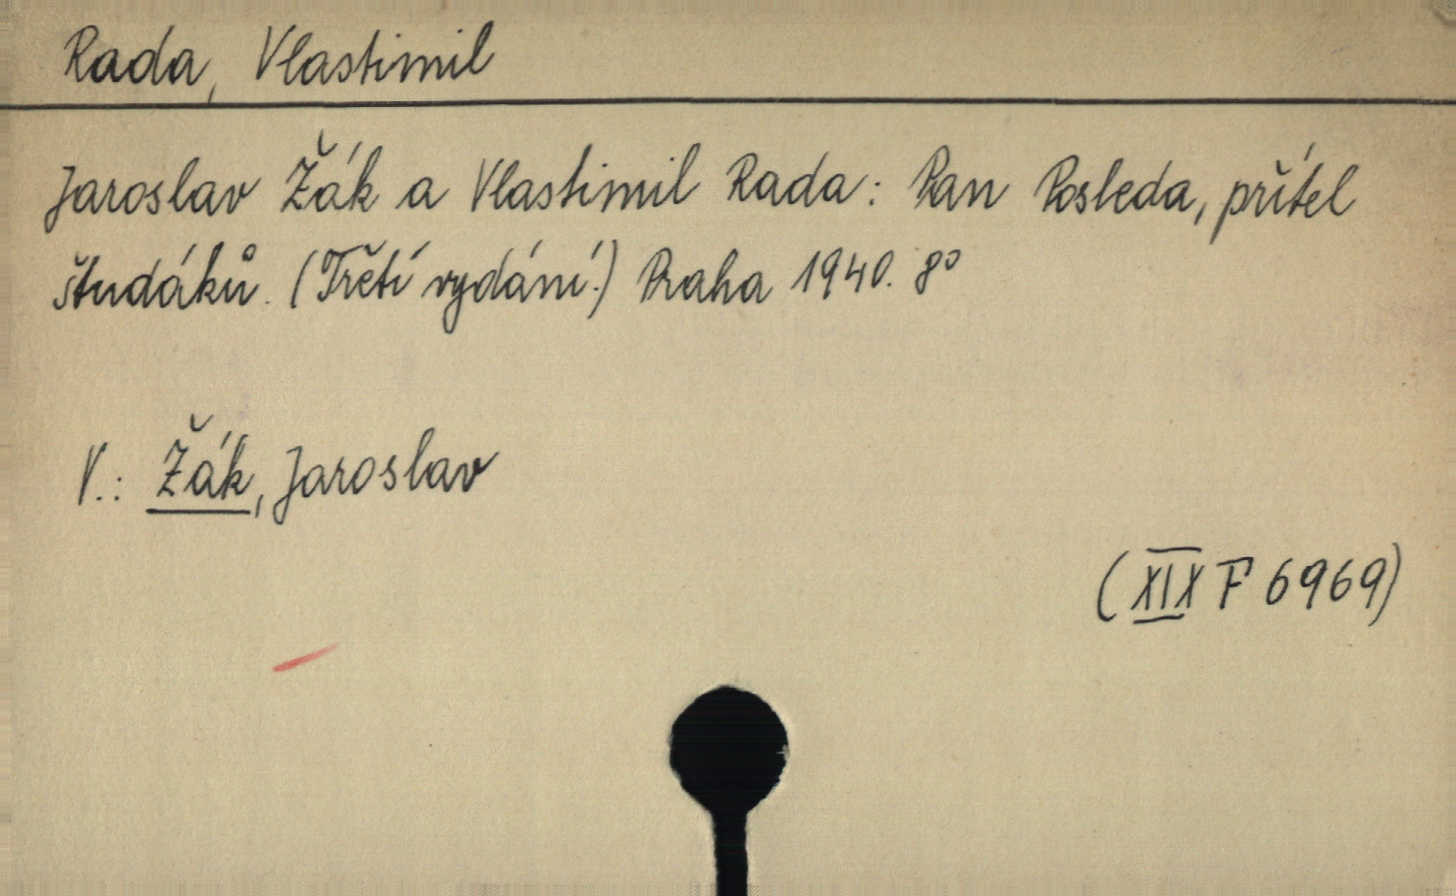 Rada, Vlastimil
Jaroslav Žák a Vlastimil Rada: Pan Posleda, přítel
študáků. (Třetí vydání.) Praha 1940. 8°
V.: Žák, Jaroslav
(XIX F 6969)